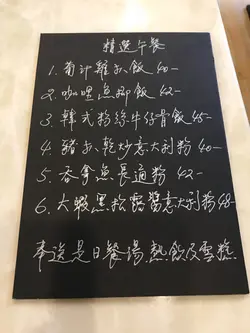 精選午餐
1. 葡汁雞扒飯 40-
2. 咖哩魚柳飯 42-
3. 韓式粉絲牛仔骨飯 45-
4. 豬扒乾炒意大利粉 40-
5. 吞拿魚長通粉 42-
6. 大蝦黑松露醬意大利粉 48-
奉送是日餐湯, 熱飲及雪糕